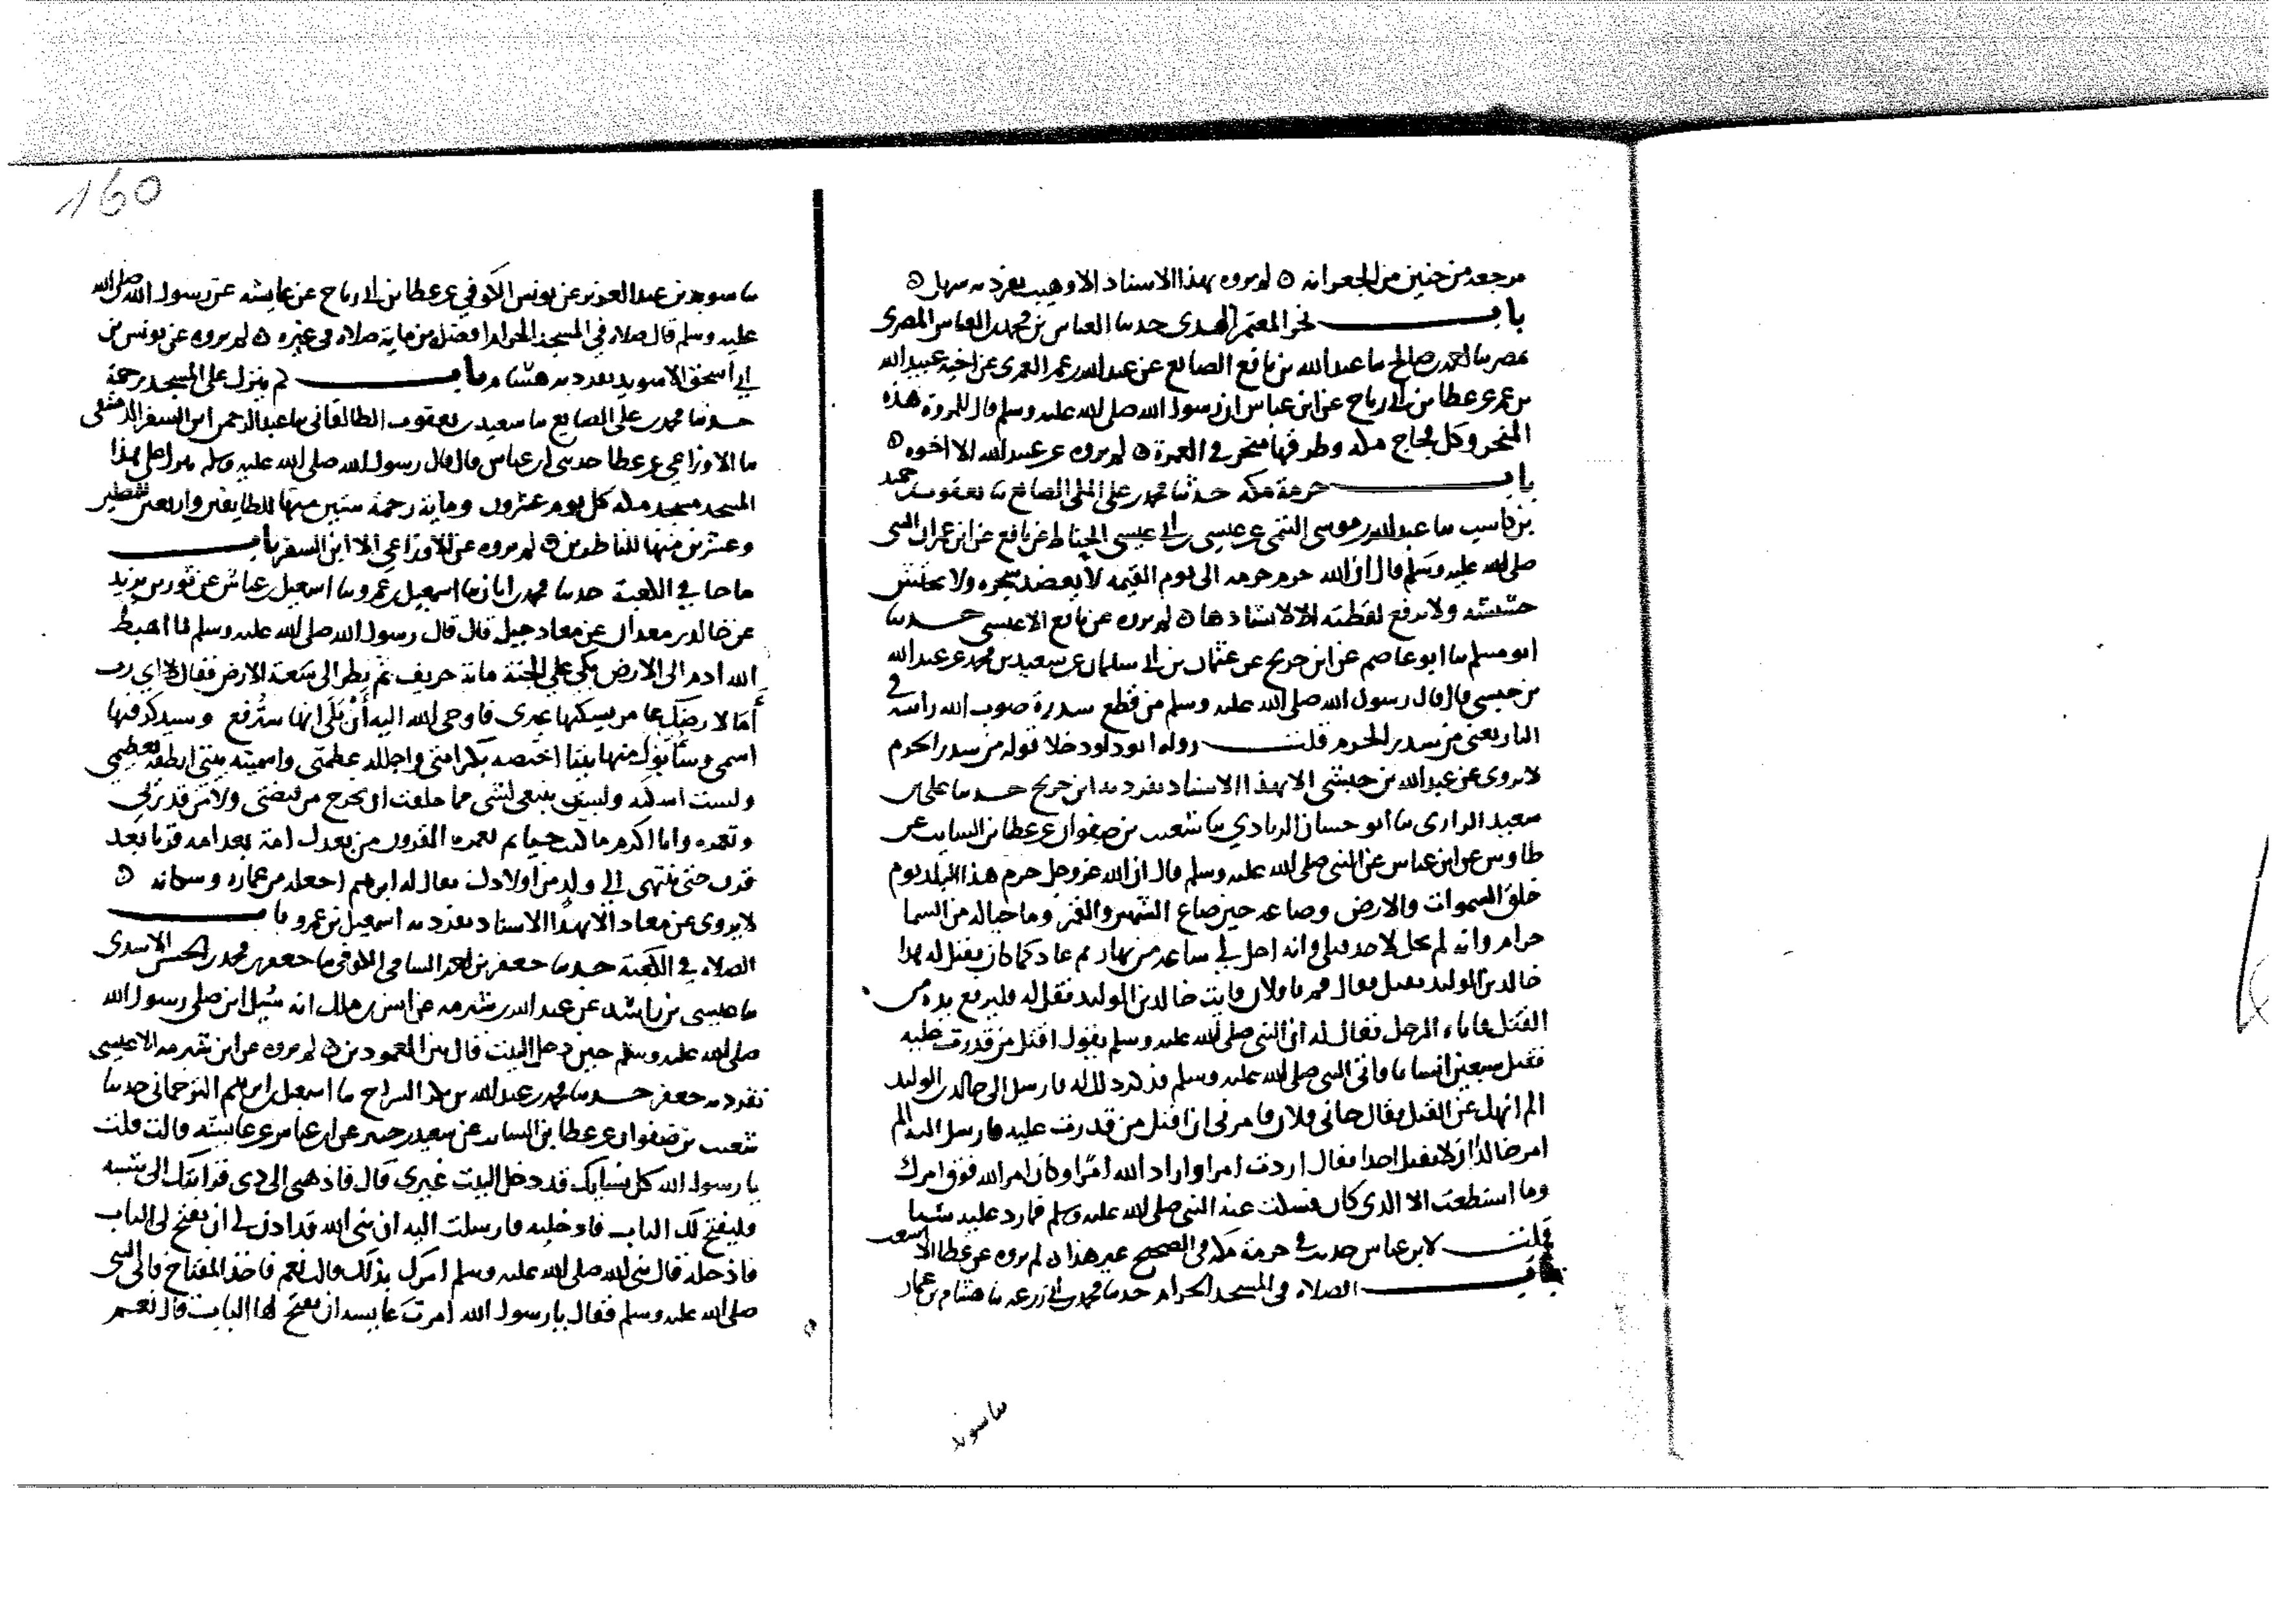 مرجعه من حنين من الجعرانه ه لم يروه بهذا الاسناد الا وهيب تفرد به سهل ه
باب نحر المعتمر الهدى حدثنا العباس بن محمد بن العباس المصرى
بمصر ثنا احمد بن صالح ثنا عبد الله بن نافع الصايغ عن عبد الله بن عمر العمرى عن اخيه عبيد الله
بن عمر عن عطا بن ابى رباح عن ابن عباس ان رسول الله صلى الله عليه وسلم قال للمروة هذه
المنحر وكل فجاج مكه وطرقها منحر فى العمرة ه لم يروه عن عبيد الله الا اخوه ه
باب حرمة مكه حدثنا محمد بن على المكى الصايغ ثنا يعقوب بن حميد
بن كاسب ثنا عبد الله بن موسى التيمى عن عيسى بن ابى عيسى الحناط عن نافع عن ابن عمر ان النبى
صلى الله عليه وسلم قال ان الله حرم حرمه الى يوم القيمه لا يعضد شجره ولا يحتش
حشيشه ولا ترفع لقطته الا لانشادها ه لم يروه عن نافع الا عيسى حدثنا
ابو مسلم ثنا ابو عاصم عن ابن جريج عن عثمان بن ابى سليمان عن سعيد بن محمد عن عبد الله
بن حبشى قال قال رسول الله صلى الله عليه وسلم من قطع سدرة صوب الله راسه فى
النار يعنى من سدر الحرم قلت رواه ابو داود خلا قوله من سدر الحرم
لا يروى عن عبد الله بن حبشى الا بهذا الاسناد تفرد به ابن جريج حدثنا على بن
سعيد الرازى ثنا ابو حسان الزيادي ثنا شعيب بن صفوان عن عطا بن السايب عن
طاوس عن ابن عباس عن النبى صلى الله عليه وسلم قال ان الله عز وجل حرم هذا البلد يوم
خلق السموات والارض وصاغه حين صاغ الشمس والقمر وما حياله من السما
حرام وانه لم يحل لاحد قبلى وانه احل لى ساعة من نهار ثم عاد كما كان فقيل له هذا
خالد بن الوليد يقتل فقال قم يا فلان فايت خالد بن الوليد فقل له فليرفع يده من
القتل فاتاه الرجل فقال له ان النبى صلى الله عليه وسلم يقول اقتل من قدرت عليه
فقتل سبعين انسانا فاتى النبى صلى الله عليه وسلم فذكر ذلك له فارسل الى خالد بن الوليد
الم انهك عن القتل فقال جانى فلان فامرنى ان اقتل من قدرت عليه فارسل اليه الم
امر خالدا ان لا يقتل احدا فقال اردت امرا واراد الله امرا وكان امر الله فوق امرك
وما استطعت الا الذى كان فسكت عنه النبى صلى الله عليه وسلم فما رد عليه شيا
قلت لابن عباس حديث فى حرمة مكه فى الصحيح غير هذا ه لم يروه عن عطا الا شعيب
باب الصلاه فى المسجد الحرام حدثنا محمد بن ابى زرعه ثنا هشام بن عمار
ثنا سويد
160
ثنا سويد بن عبد العزيز عن يونس الكوفي عن عطا بن ابى رباح عن عايشه عن رسول الله صلى الله
عليه وسلم قال صلاه فى المسجد الحرام افضل من ماية صلاه فى غيره ه لم يروه عن يونس بن
ابى اسحق الا سويد تفرد به هشام باب كم ينزل على المسجد رحمة
حدثنا محمد بن على الصايغ ثنا سعيد بن يعقوب الطالقانى ثنا عبد الرحمن ابن السفر الدمشقى
ثنا الاوزاعى عن عطا حدثنى ابن عباس قال قال رسول الله صلى الله عليه وسلم ينزل على هذا
المسجد مسجد مكه كل يوم عشرون وماية رحمة ستين منها للطايفين واربعين للمصلين
وعشرين منها للناظرين ه لم يروه عن الاوزاعى الا ابن السفر باب
ما جا فى الكعبة حدثنا محمد بن ابان ثنا اسمعيل بن عمرو ثنا اسمعيل بن عياش عن ثور بن يزيد
عن خالد بن معدان عن معاذ بن جبل قال قال رسول الله صلى الله عليه وسلم لما اهبط
الله ادم الى الارض بكى على الجنة ماية خريف ثم نظر الى سعة الارض فقال اى رب
أما لارضك عامر يسكنها غيرى فاوحى الله اليه أن بلى انها سترفع وسيذكر فيها
اسمى وسأبوئك منها بيتا اختصه بكرامتى واجلله عظمتى واسميته بيتى انطقه بعظمتى
ولست اسكنه وليس ينبغى لشى مما خلقت ان يخرج من قبضتى ولا من قدرتى
وتعمره يا ادم ما كنت حيا ثم تعمره القرون من بعدك امة بعد امه قرنا بعد
قرن حتى ينتهى الى ولد من اولادك يقال له ابرهيم اجعله من عماره وسكانه ه
لا يروى عن معاذ الا بهذا الاسناد تفرد به اسمعيل بن عمرو باب
الصلاه فى الكعبة حدثنا جعفر بن احمد السامى الكوفى ثنا جعفر بن محمد بن الحسن الاسدى
ثنا عيسى بن راشد عن عبد الله بن شبرمه عن انس بن مالك انه سُيل اين صلى رسول الله
صلى الله عليه وسلم حين دخل البيت قال بين العمودين ه لم يروه عن ابن شبرمه الا عيسى
تفرد به جعفر حدثنا محمد بن عبد الله بن بكر السراج ثنا اسمعيل بن ابرهيم الترجمانى حدثنا
شعيب بن صفوان عن عطا بن السايب عن سعيد بن جبير عن ابن عباس عن عايشه قالت قلت
يا رسول الله كل نسايك قد دخل البيت غيرى قال فاذهبى الى ذى قرابتك الى شيبه
فليفتح لك الباب فادخليه فارسلت اليه ان نبى الله قد اذن لى ان تفتح لى الباب
فادخله قال نبى الله صلى الله عليه وسلم امرك بذلك قالت نعم فاخذ المفتاح فاتى النبى
صلى الله عليه وسلم فقال يا رسول الله امرت عايشه ان يفتح لها الباب قال نعم